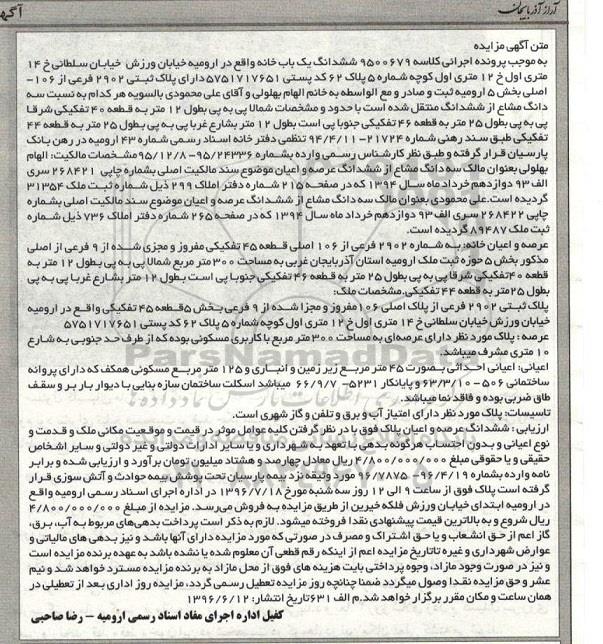 آراز آذربایجان
آگهی
متن آگهی مزایده
به موجب پرونده اجرائی کلاسه ۹۵۰۰۶۷۹ ششدانگ یک باب خانه واقع در ارومیه خیابان ورزش خیابان سلطانی خ ۱۴
متری اول خ ۱۲ متری اول کوچه شماره ۵ پلاک ۶۲ کد پستی ۵۷۵۱۷۱۷۶۵۱ دارای پلاک ثبتی ۲۹۰۲ فرعی از ۱۰۶-
اصلی بخش ۵ ارومیه ثبت و صادر و مع الواسطه به خانم الهام بهلولی و آقای علی محمودی بالسویه هر کدام به نسبت سه
دانگ مشاع از ششدانگ منتقل شده است با حدود و مشخصات شمالا پی به پی بطول ۱۲ متر به قطعه ۴۰ تفکیکی شرقا
پی به پی بطول ۲۵ متر به قطعه ۴۶ تفکیکی جنوبا پی است بطول ۱۲ متر بشارع غربا پی به پی بطول ۲۵ متر به قطعه ۴۴
تفکیکی طبق سند رهنی شماره ۲۱۷۲۴-۹۴/۴/۱۱ تنظیمی دفتر خانه اسناد رسمی شماره ۴۳ ارومیه در رهن بانک
پارسیان قرار گرفته و طبق نظر کارشناس رسمی وارده بشماره ۹۵/۲۴۳۳۶-۹۵/۱۲/۸ مشخصات مالکیت: الهام
بهلولی بعنوان مالک سه دانگ مشاع از ششدانگ عرصه و اعیان موضوع سند مالکیت اصلی بشماره چاپی ۲۶۸۴۲۱ سری
الف ۹۳ دوازدهم خرداد ماه سال ۱۳۹۴ که در صفحه ۲۱۵ شماره دفتر املاک ۲۹۹ ذیل شماره ثبت ملک ۳۱۳۵۴
گردیده است.علی محمودی بعنوان مالک سه دانگ مشاع از ششدانگ عرصه و اعیان موضوع سند مالکیت اصلی بشماره
چاپی ۲۶۸۴۲۲ سری الف ۹۳ دوازدهم خرداد ماه سال ۱۳۹۴ که در صفحه ۲۶۵ شماره دفتر املاک ۷۳۶ ذیل شماره
ثبت ملک ۸۹۴۸۷ گردیده است.
عرصه و اعیان خانه: به شماره ۲۹۰۲ فرعی از ۱۰۶ اصلی قطعه ۴۵ تفکیکی مفروز و مجزی شده از ۹ فرعی از اصلی
مذکور بخش ۵ حوزه ثبت ملک ارومیه استان آذربایجان غربی به مساحت ۳۰۰ متر مربع شمالا پی به پی بطول ۱۲ متر به
قطعه ۴۰ تفکیکی شرقا پی به پی بطول ۲۵ متر به قطعه ۴۶ تفکیکی جنوبا پی است بطول ۱۲ متر بشارع غربا پی به پی
بطول ۲۵ متر به قطعه ۴۴ تفکیکی.مشخصات ملک:
پلاک ثبتی ۲۹۰۲ فرعی از پلاک اصلی ۱۰۶ مفروز و مجزا شده از ۹ فرعی بخش ۵ قطعه ۴۵ تفکیکی واقع در ارومیه
خیابان ورزش خیابان سلطانی خ ۱۴ متری اول خ ۱۲ متری اول کوچه شماره ۵ پلاک ۶۲ کد پستی ۵۷۵۱۷۱۷۶۵۱
عرصه : پلاک مورد نظر دارای عرصه‌ای به مساحت ۳۰۰ متر مربع با کاربری مسکونی بوده که از طرف حد جنوبی به شارع
۱۰ متری مشرف میباشد.
اعیانی: اعیانی احداثی بصورت ۴۵ متر مربع زیر زمین و انباری و ۱۲۵ متر مربع مسکونی همکف که دارای پروانه
ساختمانی ۵۰۶-۶۳/۳/۱۰ و پایانکار ۵۲۳۱-۶۶/۹/۷ میباشد اسکلت ساختمان سازه بنایی با دیوار باربر و سقف
طاق ضربی بوده و فاقد نما میباشد.
تاسیسات: پلاک مورد نظر دارای امتیاز آب و برق و تلفن و گاز شهری است.
ارزیابی : ششدانگ عرصه و اعیان پلاک فوق با در نظر گرفتن کلیه عوامل موثر در قیمت و موقعیت مکانی ملک و قدمت و
نوع اعیانی و بدون احتساب هرگونه بدهی یا تعهد به شهرداری و یا سایر ادارات دولتی و غیر دولتی و سایر اشخاص
حقیقی و یا حقوقی مبلغ ۴/۸۰۰/۰۰۰/۰۰۰ ریال معادل چهارصد و هشتاد میلیون تومان برآورد و ارزیابی شده و برابر
نامه وارده بشماره ۹۶/۷۸۷۵-۹۶/۴/۱۹ مورد وثیقه نزد بیمه پارسیان تحت پوشش بیمه حوادث و آتش سوزی قرار
گرفته است پلاک فوق از ساعت ۹ الی ۱۲ روز سه شنبه مورخ ۱۳۹۶/۷/۱۸ در اداره اجرای اسناد رسمی ارومیه واقع
در ارومیه ابتدای خیابان ورزش فلکه خیرین از طریق مزایده به فروش می‌رسد. مزایده از مبلغ ۴/۸۰۰/۰۰۰/۰۰۰
ریال شروع و به بالاترین قیمت پیشنهادی نقدا فروخته میشود. لازم به ذکر است پرداخت بدهی‌های مربوط به آب، برق،
گاز اعم از حق انشعاب و یا حق اشتراک و مصرف در صورتی که مورد مزایده دارای آنها باشد و نیز بدهی های مالیاتی و
عوارض شهرداری و غیره تا تاریخ مزایده اعم از اینکه رقم قطعی آن معلوم شده یا نشده باشد به عهده برنده مزایده است
و نیز در صورت وجود مازاد، وجوه پرداختی بابت هزینه های فوق از محل مازاد به برنده مزایده مسترد خواهد شد و نیم
عشر و حق مزایده نقدا وصول میگردد ضمنا چنانچه روز مزایده تعطیل رسمی گردد، مزایده روز اداری بعد از تعطیلی در
همان ساعت و مکان مقرر برگزار خواهد شد.م الف ۶۳۱ تاریخ انتشار: ۱۳۹۶/۶/۱۲
کفیل اداره اجرای مفاد اسناد رسمی ارومیه – رضا صاحبی